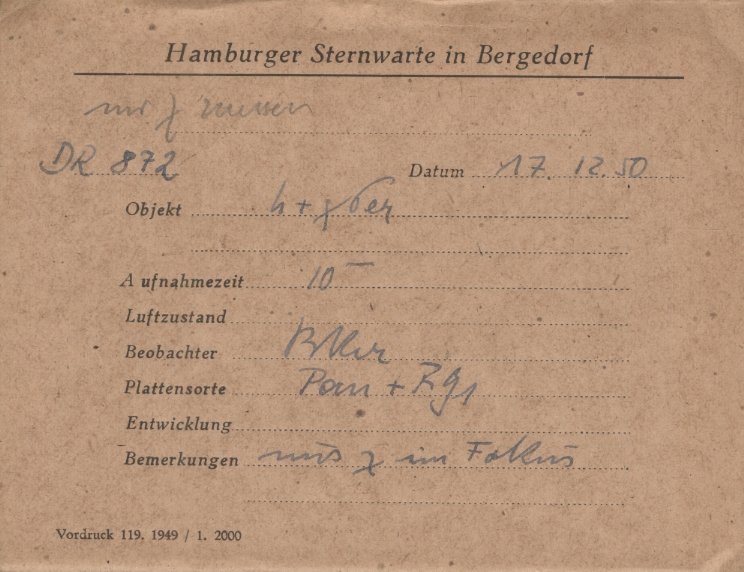 Hamburger Sternwarte in Bergedorf
DR 872 Datum 17. 12. 50
Objekt h + χ Per
Aufnahmezeit 10
Luftzustand
Beobachter
Plattensorte Pan +
Entwicklung
Bemerkungen χ im Fokus
Vordruck 119. 1949 / 1. 2000